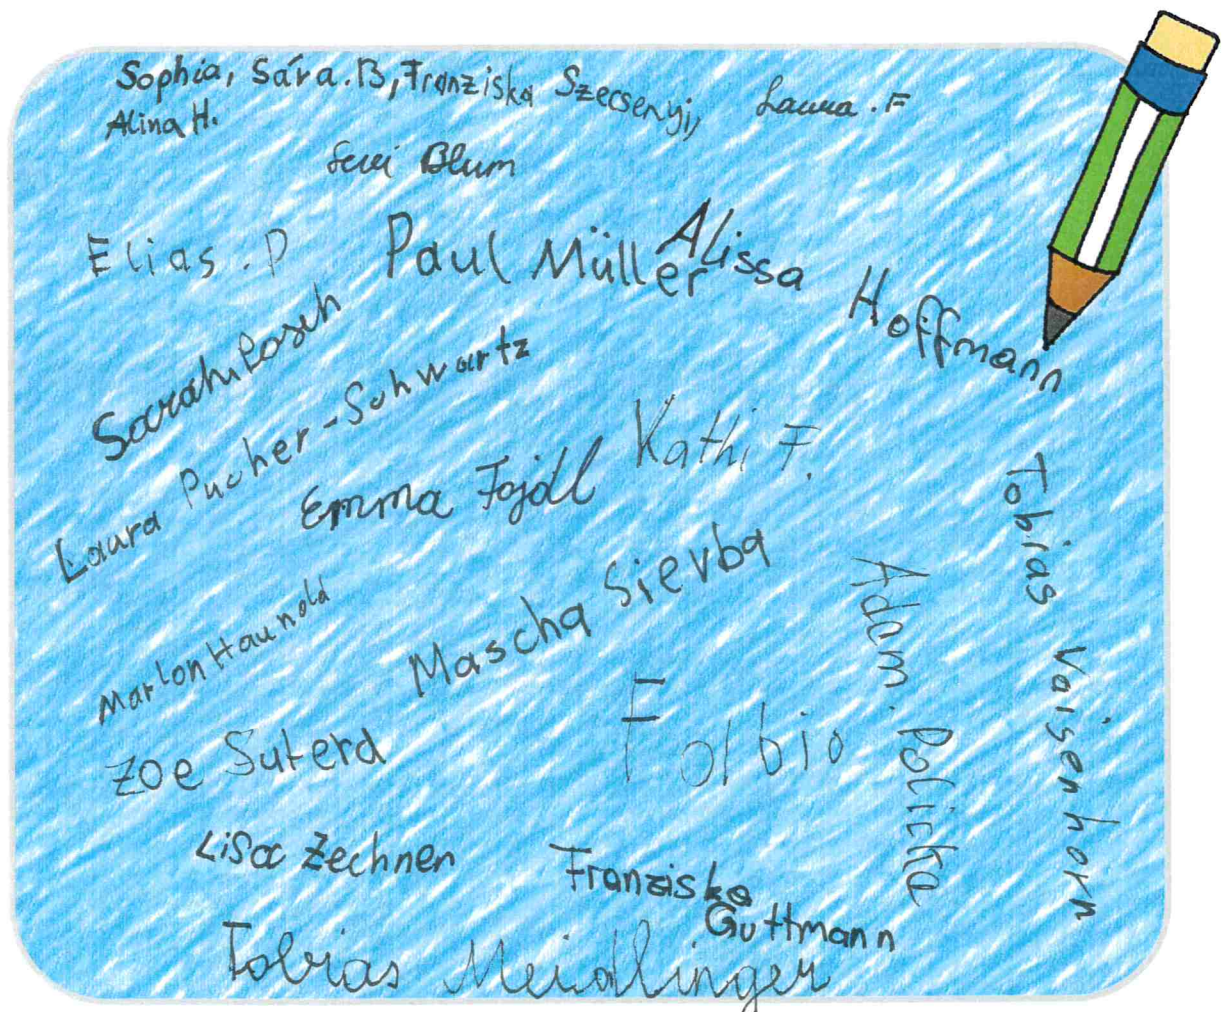 Sophia, Sára.B, Franziska Szecsenyi, Laura.F
Alina H.
Blum
Elias.P
Paul Müller
Alissa Hoffmann
Sarah Posch
Laura Pucher-Schwartz
Emma Fojdl
Kathi F.
Tobias Vaisenhorn
Marlon Haunold
Mascha Sierba
Adam. Policka
Zoe Suterd
Fabio
Lisa Zechner
Franziska
Guttmann
Tobias Meidlinger